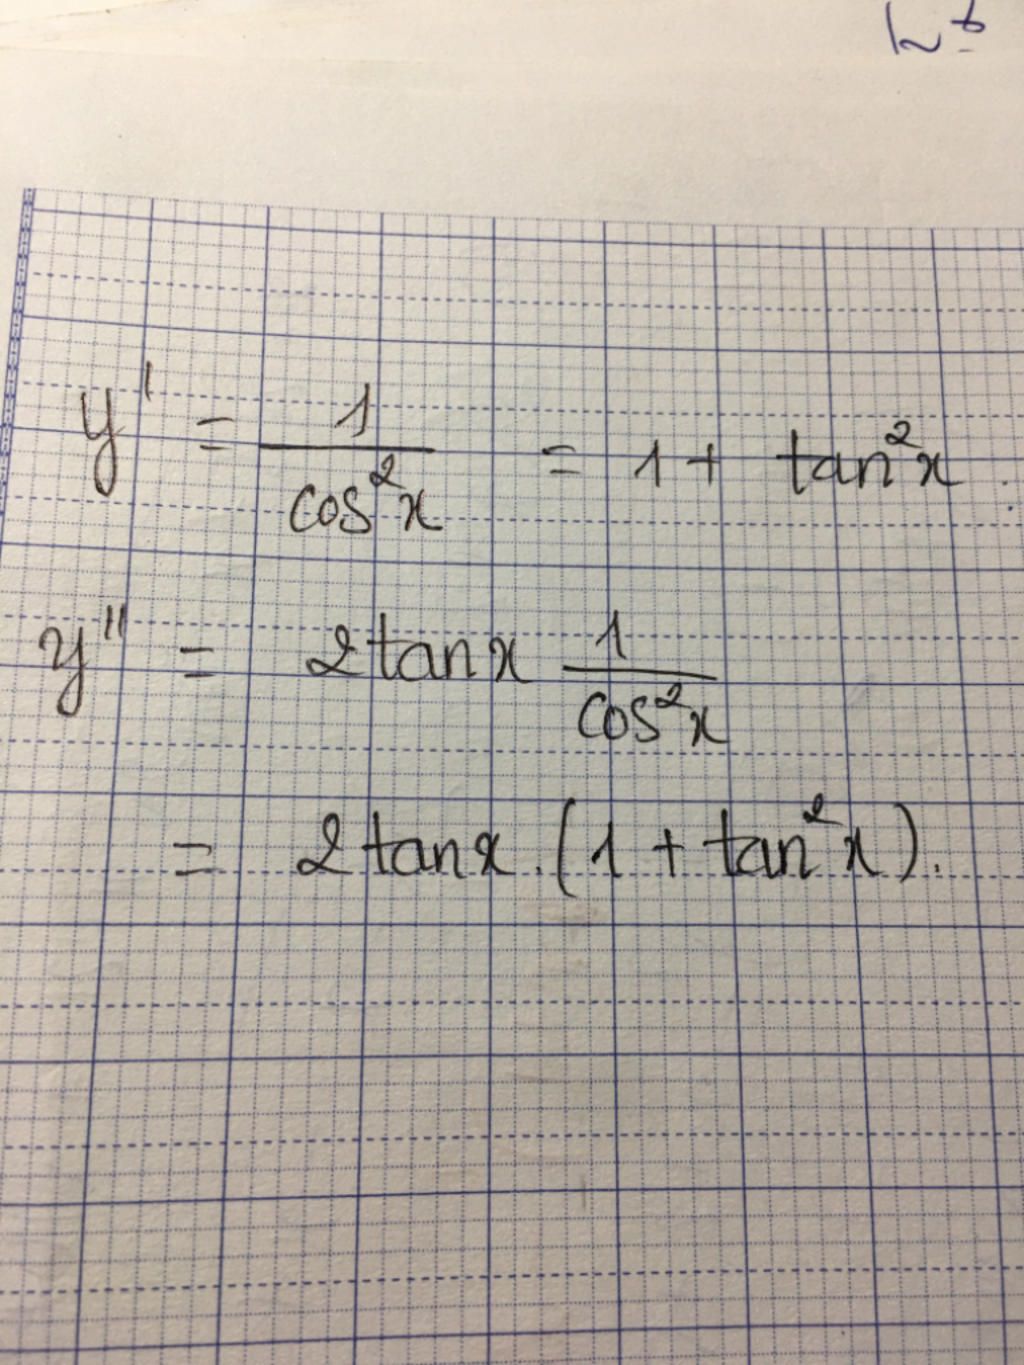 y' = 1/cos²x = 1 + tan²x.
y'' = 2tanx 1/cos²x
= 2tanx.(1 + tan²x).